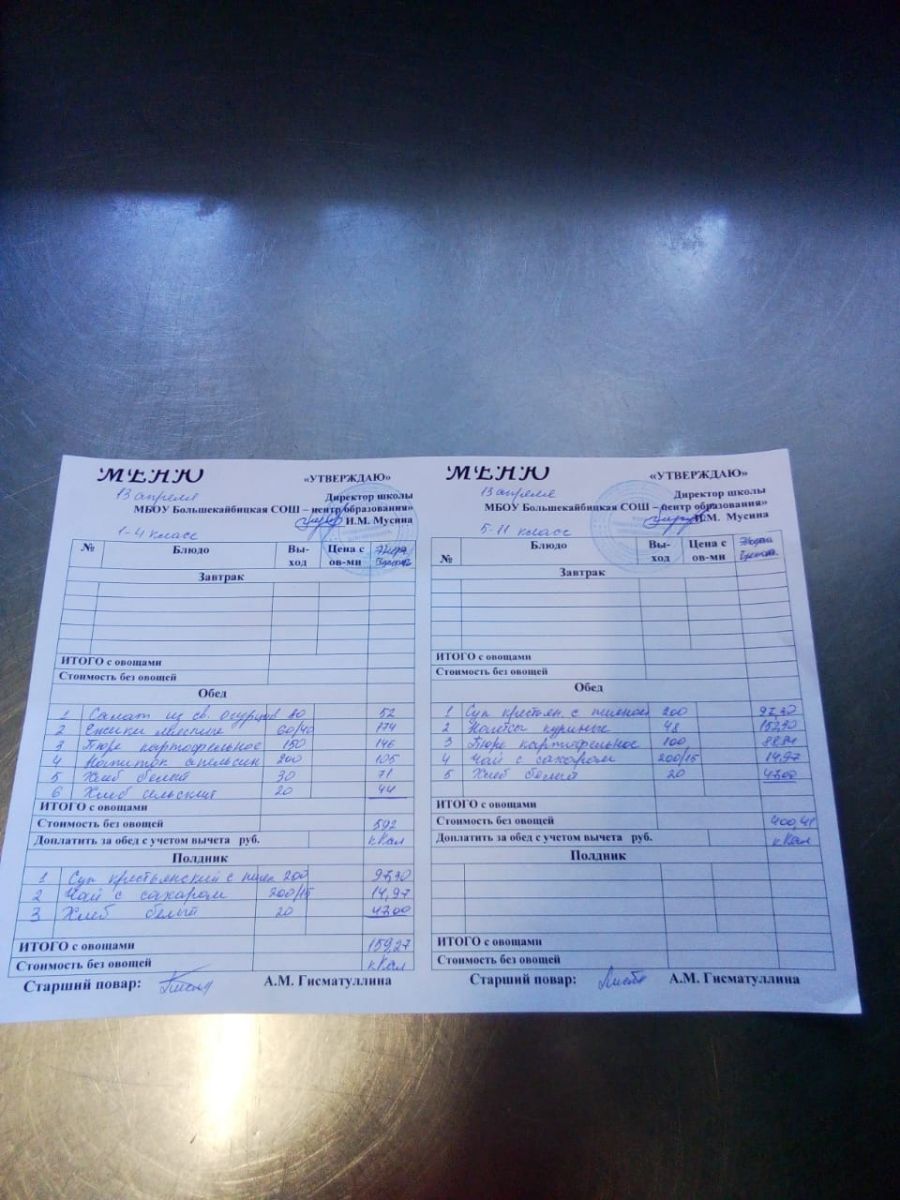 МЕНЮ
«УТВЕРЖДАЮ»
13 апреля
Директор школы
МБОУ Большекайбицкая СОШ – центр образования»
И.М. Мусина
1-4 класс
№ Блюдо Вы-ход Цена с ов-ми
Завтрак
ИТОГО с овощами
Стоимость без овощей
Обед
1 Салат из св. огурцов 80 52
2 60/40 174
3 Пюре картофельное 150 146
4 Напиток апельсин 200 105
5 Хлеб белый 30 71
6 Хлеб сельский 20 44
ИТОГО с овощами
Стоимость без овощей 592
Доплатить за обед с учетом вычета руб. кКал
Полдник
1 Суп крестьянский с пшен 200 97,30
2 Чай с сахаром 200/15 14,97
3 Хлеб белый 20 47,00
ИТОГО с овощами 159,27
Стоимость без овощей кКал
Старший повар: А.М. Гисматуллина
МЕНЮ
«УТВЕРЖДАЮ»
13 апреля
Директор школы
МБОУ Большекайбицкая СОШ – центр образования»
И.М. Мусина
5-11 класс
№ Блюдо Вы-ход Цена с ов-ми
Завтрак
ИТОГО с овощами
Стоимость без овощей
Обед
1 Суп крестьян. с пшеном 200 97,30
2 Котлеты куриные 48 152,30
3 Пюре картофельное 100
4 Чай с сахаром 200/15 14,97
5 Хлеб белый 20 47,00
ИТОГО с овощами
Стоимость без овощей 400,41
Доплатить за обед с учетом вычета руб. кКал
Полдник
ИТОГО с овощами
Стоимость без овощей
Старший повар: А.М. Гисматуллина